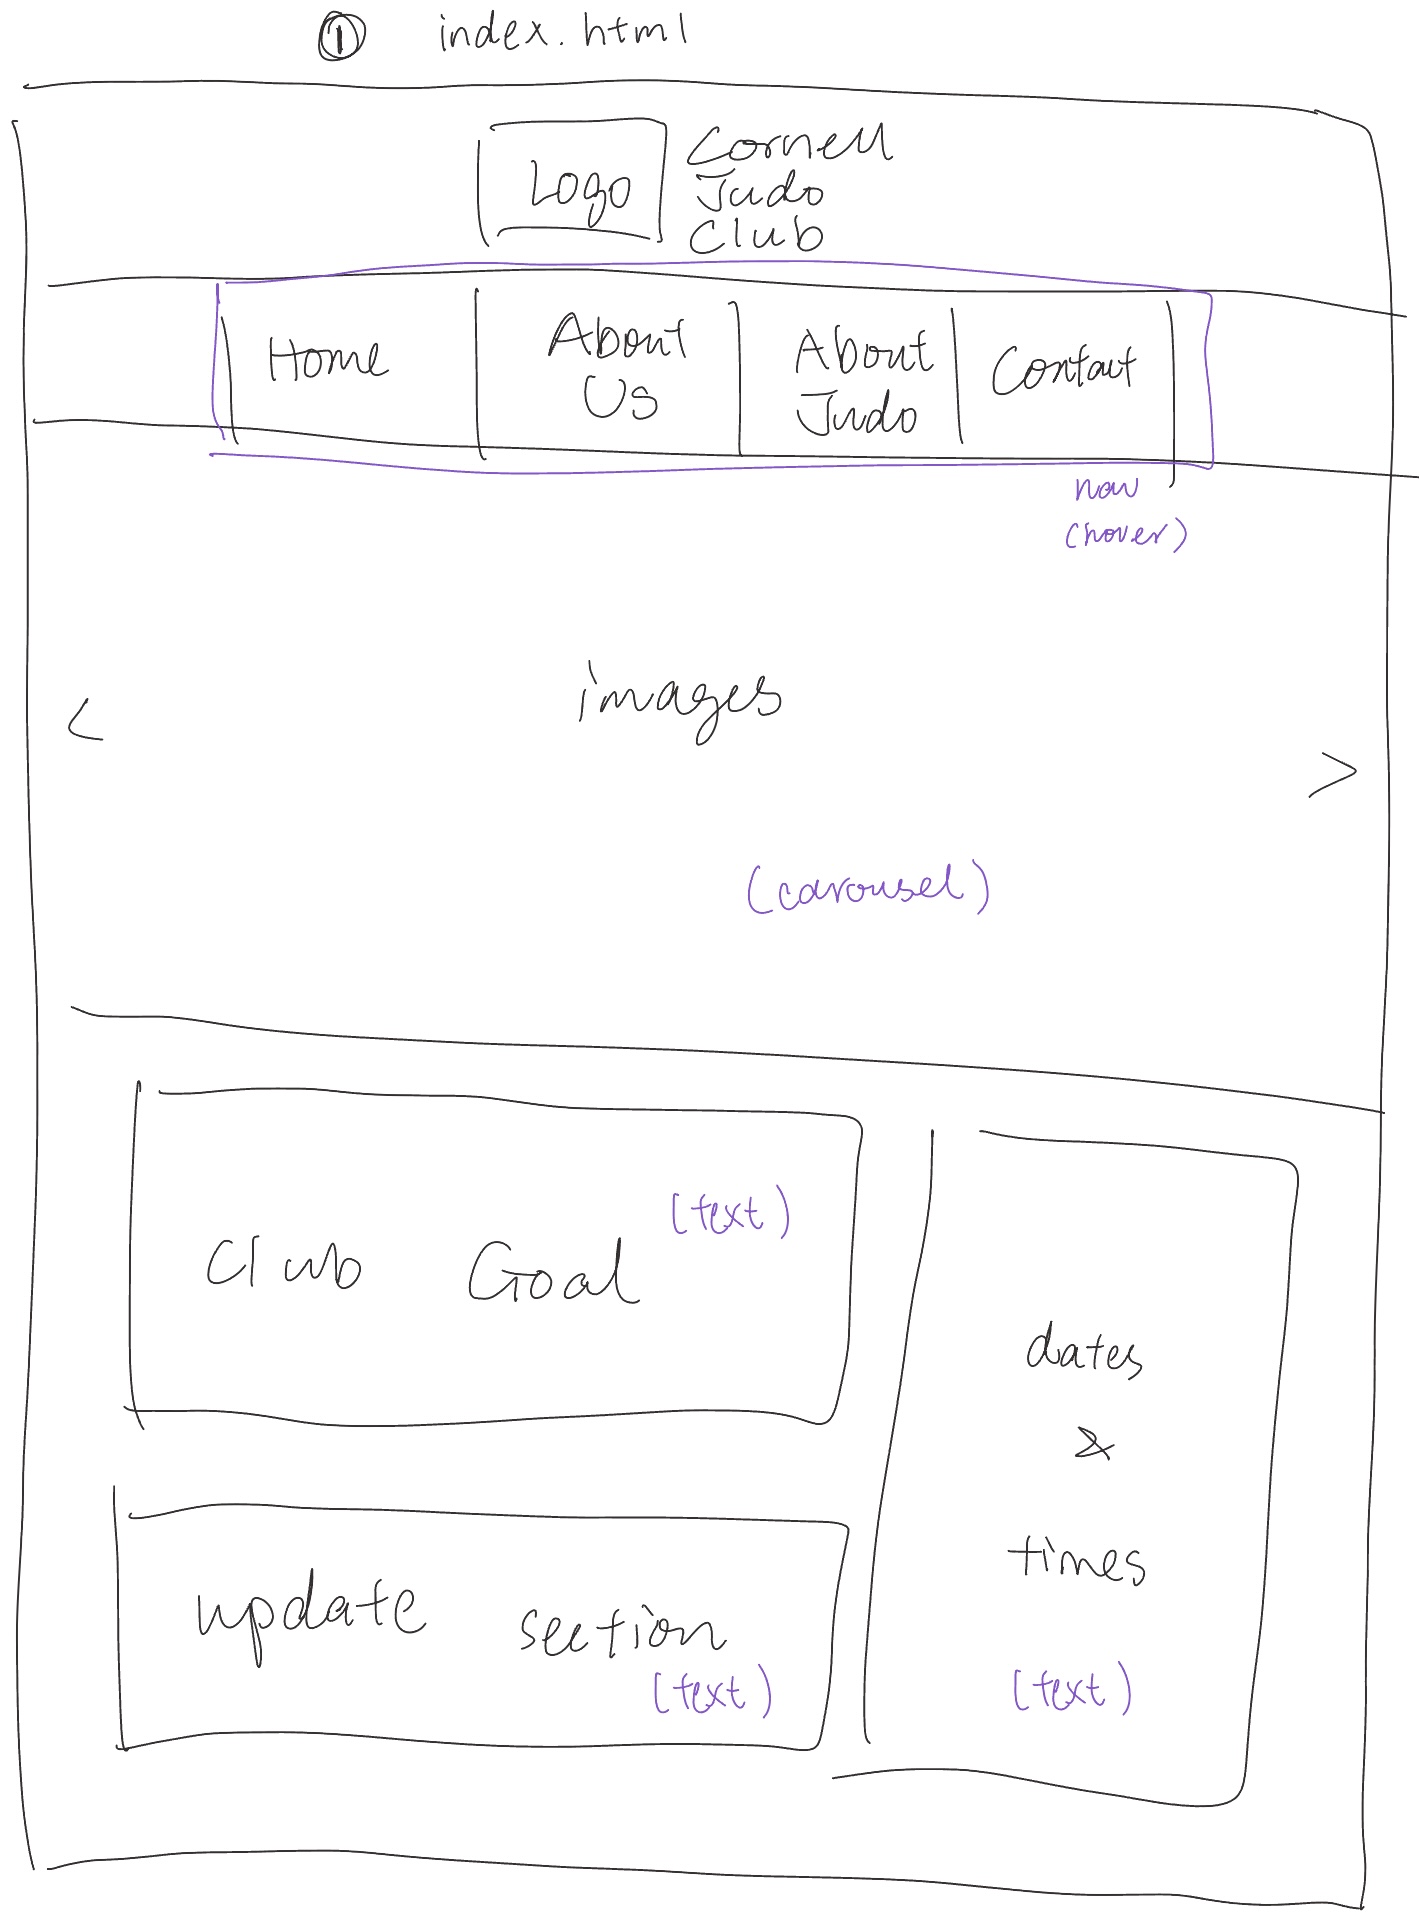 ① index.html
Logo
Cornell
Judo
Club
Home
About
Us
About
Judo
Contact
nav
(hover)
images
<
>
(carousel)
Club Goal
(text)
dates
&
times
(text)
update section
(text)